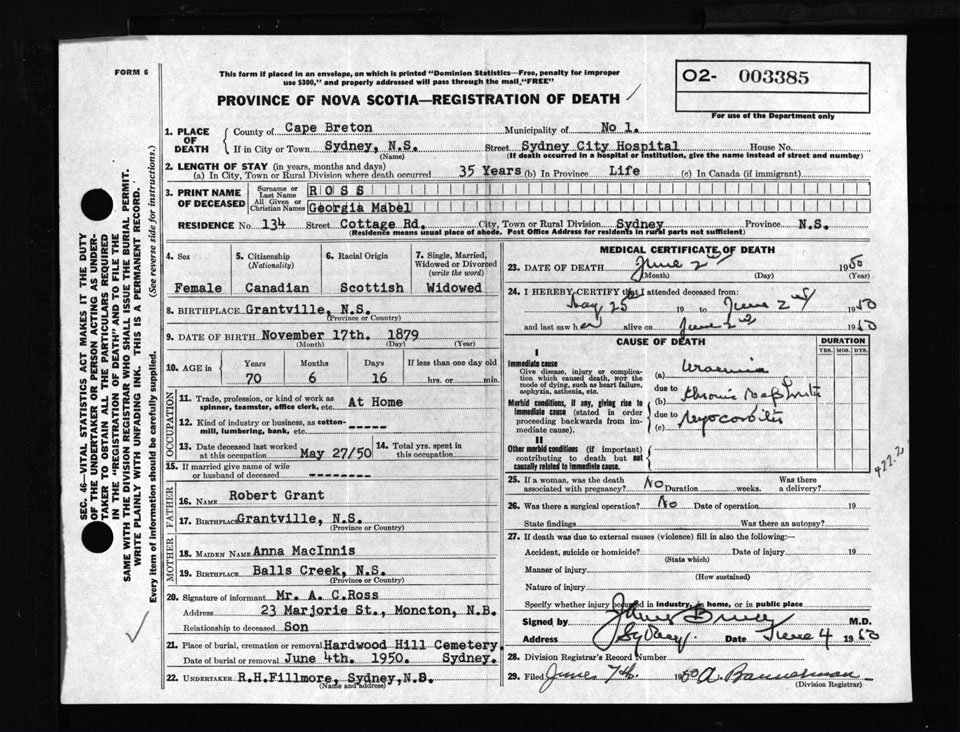 FORM 6
This form if placed in an envelope, on which is printed "Dominion Statistics—Free, penalty for improper
use $300," and properly addressed will pass through the mail "FREE"
PROVINCE OF NOVA SCOTIA—REGISTRATION OF DEATH
O2- 003385
For use of the Department only
SEC. 46—VITAL STATISTICS ACT MAKES IT THE DUTY
OF THE UNDERTAKER OR PERSON ACTING AS UNDER-
TAKER TO OBTAIN ALL THE PARTICULARS REQUIRED
IN THE "REGISTRATION OF DEATH" AND TO FILE THE
SAME WITH THE DIVISION REGISTRAR WHO SHALL ISSUE THE BURIAL PERMIT.
WRITE PLAINLY WITH UNFADING INK. THIS IS A PERMANENT RECORD.
Every item of information should be carefully supplied. (See reverse side for instructions.)
1. PLACE OF DEATH
County of Cape Breton Municipality of No 1.
If in City or Town Sydney, N.S. Street Sydney City Hospital House No.
(Name) (If death occurred in a hospital or institution, give the name instead of street and number)
2. LENGTH OF STAY (in years, months and days)
(a) In City, Town or Rural Division where death occurred 35 Years (b) In Province Life (c) In Canada (if immigrant)
3. PRINT NAME OF DECEASED
Surname or Last Name ROSS
All Given or Christian Names Georgia Mabel
RESIDENCE No 134 Street Cottage Rd. City, Town or Rural Division Sydney Province N.S.
(Residence means usual place of abode. Post Office Address for residents in rural parts not sufficient)
4. Sex
Female
5. Citizenship (Nationality)
Canadian
6. Racial Origin
Scottish
7. Single, Married, Widowed or Divorced (write the word)
Widowed
8. BIRTHPLACE Grantville, N.S.
(Province or Country)
9. DATE OF BIRTH November 17th. 1879
(Month) (Day) (Year)
10. AGE in Years Months Days If less than one day old
70 6 16 hrs. or min.
OCCUPATION
11. Trade, profession, or kind of work as spinner, teamster, office clerk, etc. At Home
12. Kind of industry or business, as cotton-mill, lumbering, bank, etc. ------
13. Date deceased last worked at this occupation May 27/50 14. Total yrs. spent in this occupation
15. If married give name of wife or husband of deceased --------
FATHER
16. NAME Robert Grant
17. BIRTHPLACE Grantville, N.S.
(Province or Country)
MOTHER
18. MAIDEN NAME Anna MacInnis
19. BIRTHPLACE Balls Creek, N.S.
(Province or Country)
20. Signature of informant Mr. A. C.Ross
Address 23 Marjorie St., Moncton, N.B.
Relationship to deceased Son
21. Place of burial, cremation or removal Hardwood Hill Cemetery.
Date of burial or removal June 4th. 1950. Sydney.
22. UNDERTAKER R.H.Fillmore, Sydney,N.S.
(Name and address)
MEDICAL CERTIFICATE OF DEATH
23. DATE OF DEATH June 2nd 1950
(Month) (Day) (Year)
24. I HEREBY CERTIFY that I attended deceased from:
May 25th 19 to June 2nd 1950
and last saw her alive on June 2nd 1950
CAUSE OF DEATH
DURATION
YRS. MOS. DYS.
I
Immediate cause
Give disease, injury or complication which caused death, NOT the mode of dying, such as heart failure, asphyxia, asthenia, etc.
(a) Uraemia
due to
Morbid conditions, if any, giving rise to immediate cause (stated in order proceeding backwards from immediate cause).
(b) Chronic Nephritis
due to
(c) Myocarditis
II
Other morbid conditions (if important) contributing to death but not causally related to immediate cause.
422.2
25. If a woman, was the death associated with pregnancy? No Duration weeks. Was there a delivery?
26. Was there a surgical operation? No Date of operation 19
State findings Was there an autopsy?
27. If death was due to external causes (violence) fill in also the following:—
Accident, suicide or homicide? Date of injury 19
(State which)
Manner of injury
(How sustained)
Nature of injury
Specify whether injury occurred in industry, in home, or in public place
Signed by M.D.
Address Sydney. Date June 4 1950
28. Division Registrar's Record Number
29. Filed June 7th. 1950 A. Bannerman
(Division Registrar)